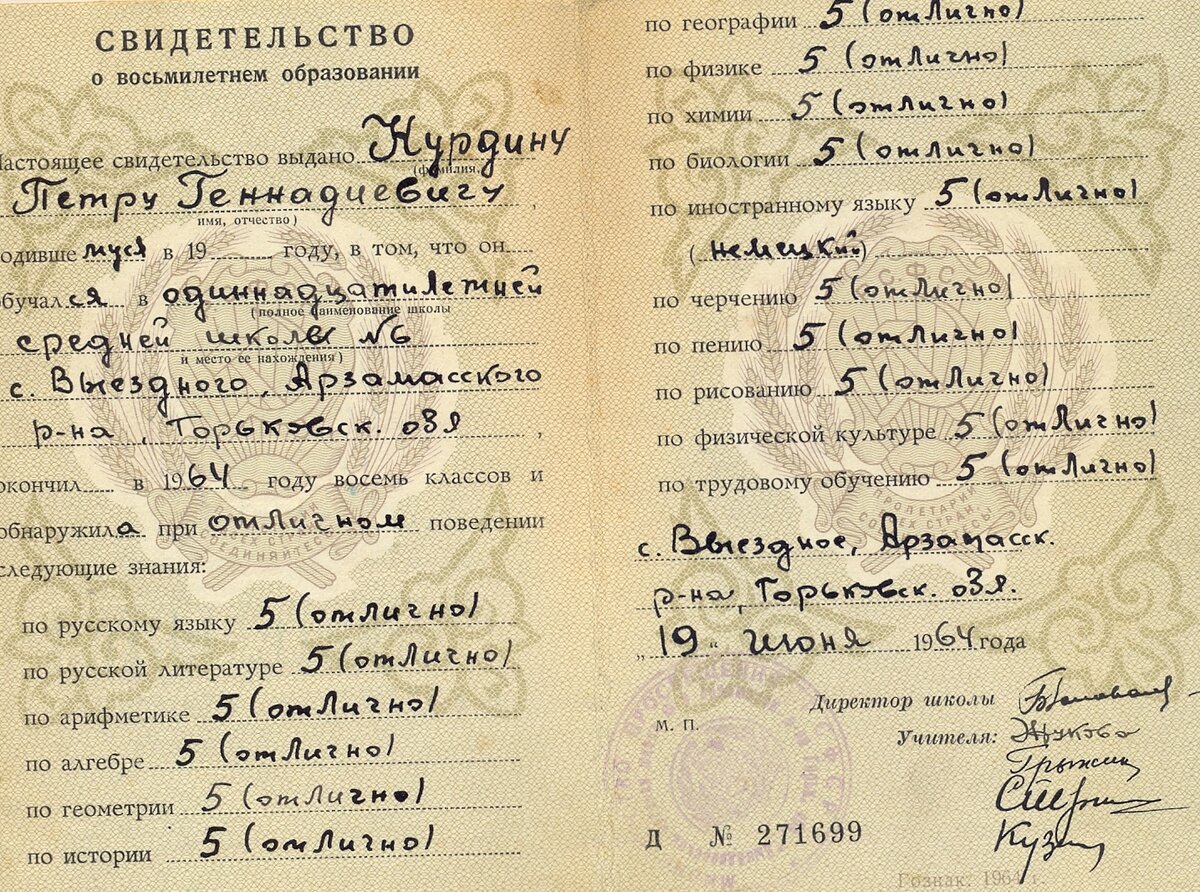 СВИДЕТЕЛЬСТВО
о восьмилетнем образовании
Настоящее свидетельство выдано Курдину
(фамилия,
Петру Геннадиевичу,
имя, отчество)
одивше муся в 19 году, в том, что он
обучался в одиннадцатилетней
(полное наименование школы
средней школы №6
и место ее нахождения)
с. Выездного, Арзамасского
р-на, Горьковск. обл,
окончил в 1964 году восемь классов и
обнаружила при отличном поведении
следующие знания:
по русскому языку 5 (отлично)
по русской литературе 5 (отлично)
по арифметике 5 (отлично)
по алгебре 5 (отлично)
по геометрии 5 (отлично)
по истории 5 (отлично)
по географии 5 (отлично)
по физике 5 (отлично)
по химии 5 (отлично)
по биологии 5 (отлично)
по иностранному языку 5 (отлично)
(немецкий)
по черчению 5 (отлично)
по пению 5 (отлично)
по рисованию 5 (отлично)
по физической культуре 5 (отлично)
по трудовому обучению 5 (отлично)
с. Выездное, Арзамасск.
р-на, Горьковск. обл.
„19" июня 1964 года
Директор школы
М. П.
Учителя: Жукова
Д № 271699
Гознак. 1964 г.